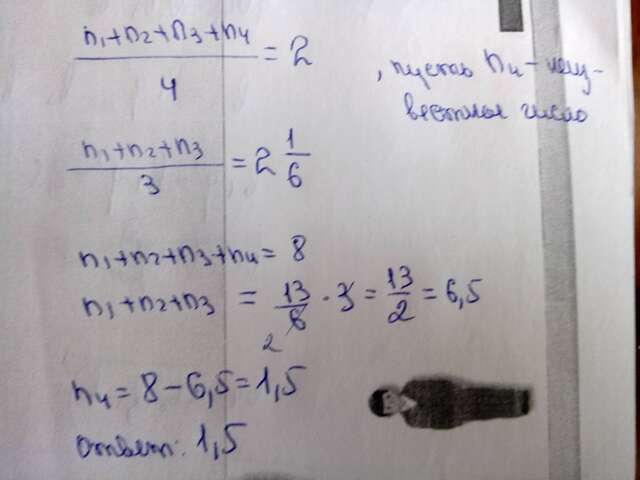 (n₁+n₂+n₃+n₄)/4 = 2 , пусть n₄ – неиз-
вестное число
(n₁+n₂+n₃)/3 = 2 1/6
n₁+n₂+n₃+n₄ = 8
n₁+n₂+n₃ = 13/6 · 3 = 13/2 = 6,5
2
n₄ = 8 – 6,5 = 1,5
Ответ: 1,5